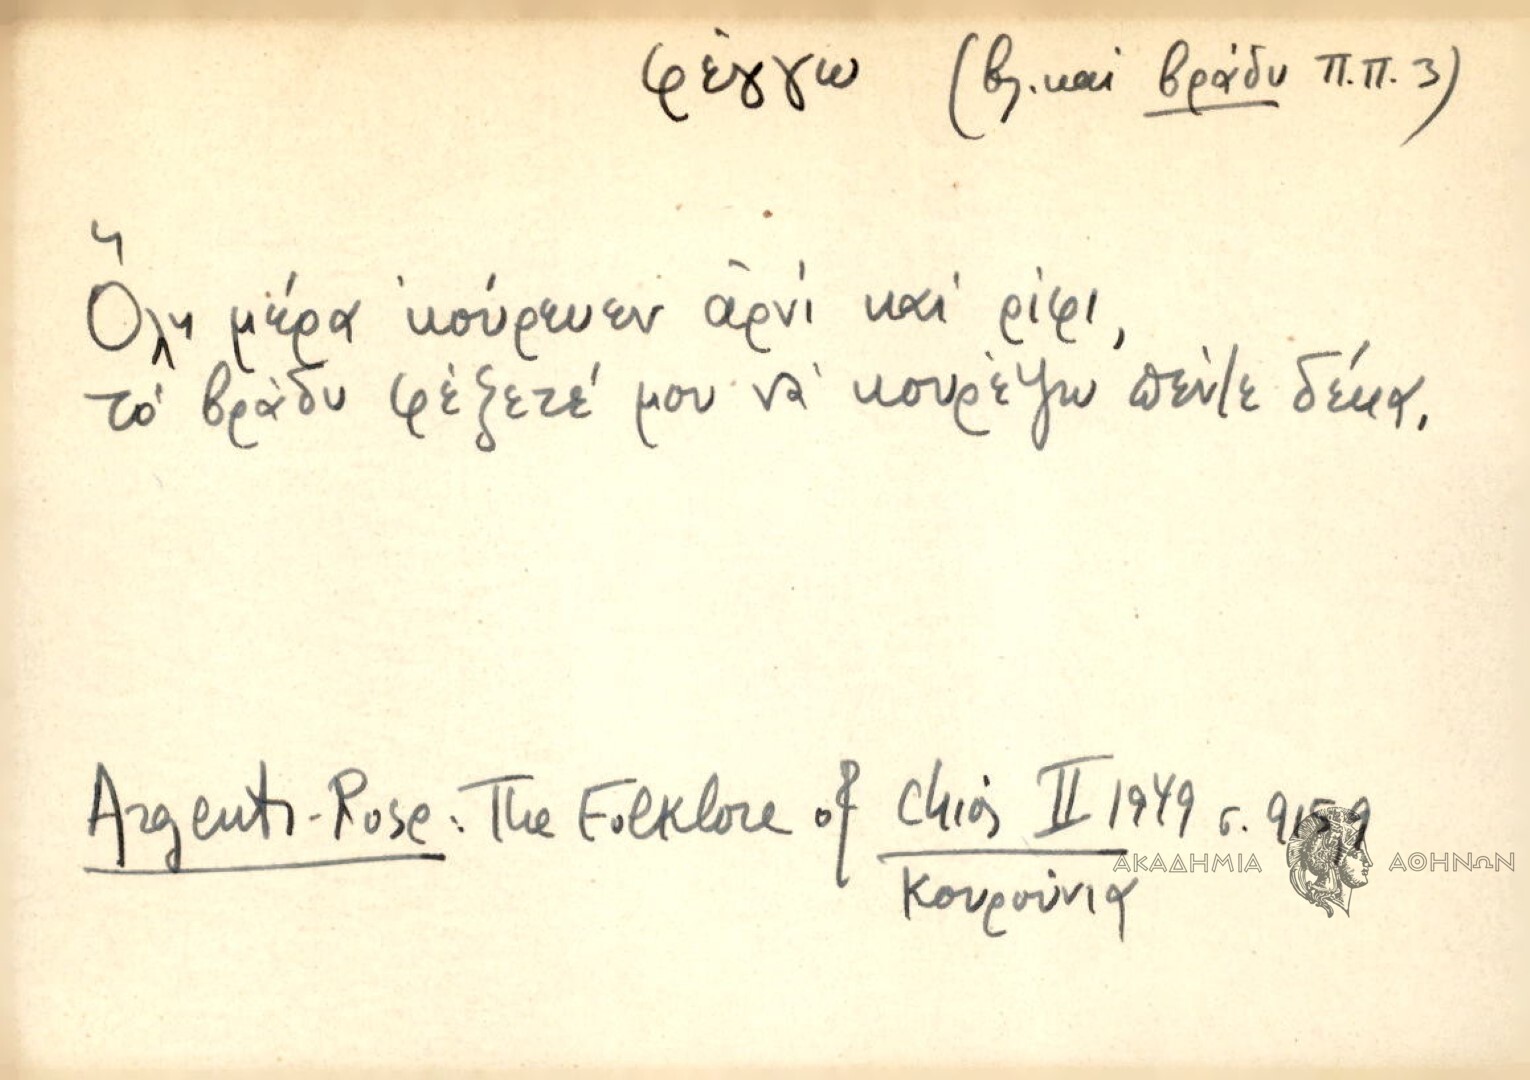 φέγγω (βλ. καὶ βράδυ π.π. 3)
Ὅλη μέρα 'κούρευεν ἀρνὶ καὶ ρίφι,
τὸ βράδυ φέξετέ μου νὰ κουρέψω πέντε δέκα.
Argenti-Rose: The Folklore of Chios II 1949 σ.
Κουρούνια
ΑΚΑΔΗΜΙΑ ΑΘΗΝΩΝ